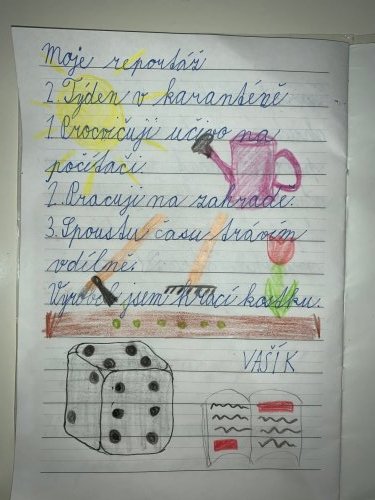 Moje reportáž
2. Týden v karanténě
1. Procvičuji učivo na
počítači.
2. Pracuji na zahradě.
3. Spoustu času trávím
vdílně.
Vyrobil jsem hrací kostku.
VAŠÍK